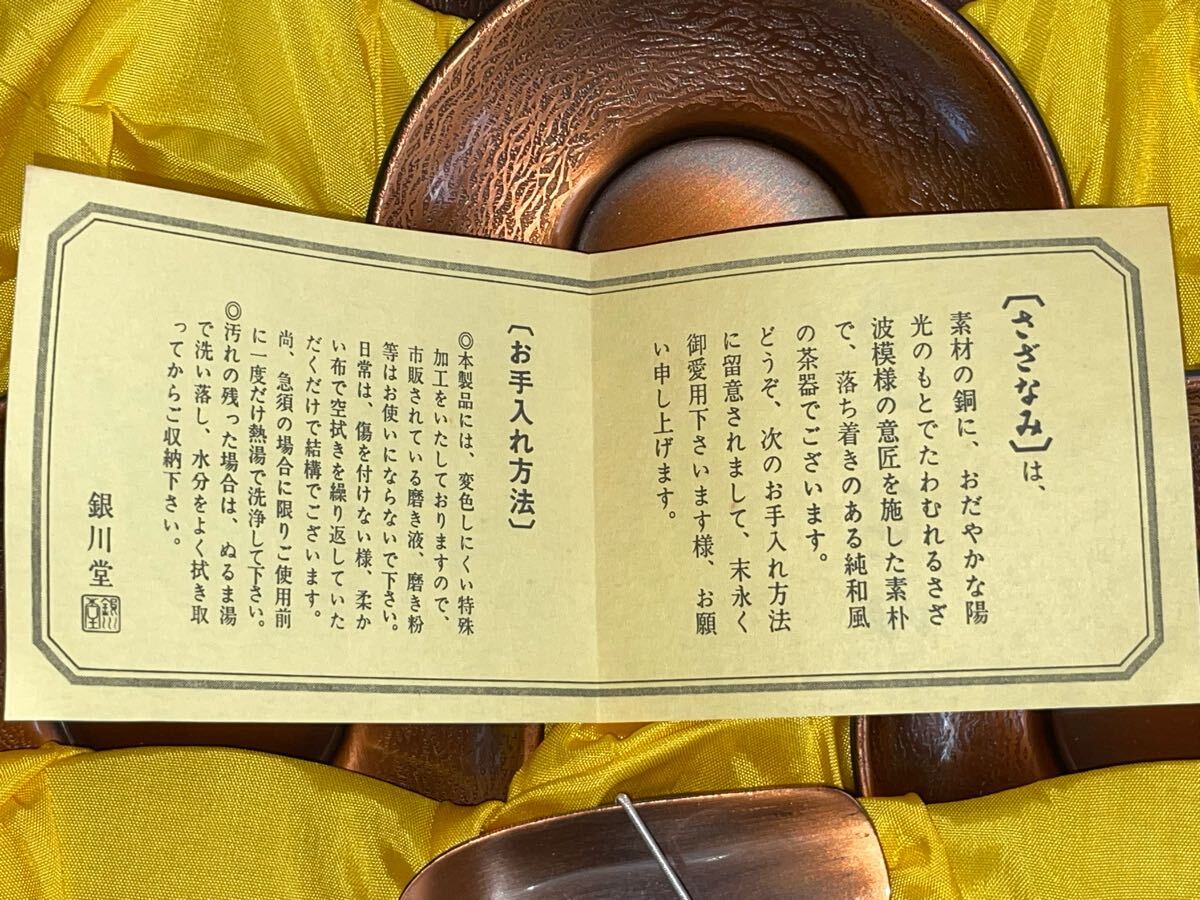 〔さざなみ〕は、
素材の銅に、おだやかな陽
光のもとでたわむれるさざ
波模様の意匠を施した素朴
で、落ち着きのある純和風
の茶器でございます。
どうぞ、次のお手入れ方法
に留意されまして、末永く
御愛用下さいます様、お願
い申し上げます。
〔お手入れ方法〕
◎本製品には、変色しにくい特殊
加工をいたしておりますので、
市販されている磨き液、磨き粉
等はお使いにならないで下さい。
日常は、傷を付けない様、柔か
い布で空拭きを繰り返していた
だくだけで結構でございます。
尚、急須の場合に限りご使用前
に一度だけ熱湯で洗浄して下さい。
◎汚れの残った場合は、ぬるま湯
で洗い落し、水分をよく拭き取
ってからご収納下さい。
銀川堂
銀川堂